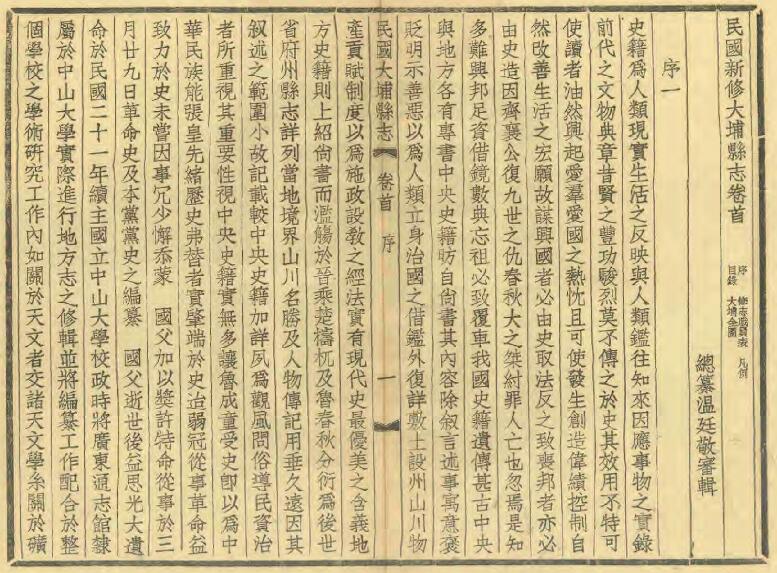 民國新修大埔縣志卷首
序 修志職員表 凡例
目錄 大埔全圖
總纂温廷敬審輯
序一
史籍爲人類現實生活之反映與人類鑑往知來因應事物之實錄
前代之文物典章昔賢之豐功駿烈莫不傳之於史其效用不特可
使讀者油然興起愛羣愛國之熱忱且可使發生創造偉績控制自
然改善生活之宏願故謀興國者必由史取法反之致喪邦者亦必
由史造因齊襄公復九世之仇春秋大之桀紂罪人亡也忽焉是知
多難興邦足資借鏡數典忘祖必致覆車我國史籍遺傳甚古中央
與地方各有專書中央史籍昉自尙書其內容除敘言述事寓意褒
貶明示善惡以爲人類立身治國之借鑑外復詳敷土設州山川物
民國大埔縣志 卷首 序 一
產貢賦制度以爲施政設教之經法實有現代史最優美之含義地
方史籍則上紹尙書而濫觴於晉乘楚檮杌及魯春秋分衍爲後世
省府州縣志詳列當地境界山川名勝及人物傳記用垂久遠因其
敘述之範圍小故記載較中央史籍加詳夙爲觀風問俗導民資治
者所重視其重要性視中央史籍實無多讓魯成童受史卽以爲中
華民族能張皇先緒歷史弗替者實肇端於史迨弱冠從事革命益
致力於史未嘗因事冗少懈忝蒙 國父加以獎許特命從事於三
月廿九日革命史及本黨黨史之編纂 國父逝世後益思光大遺
命於民國二十一年續主國立中山大學校政時將廣東通志館隸
屬於中山大學實際進行地方志之修輯並將編纂工作配合於整
個學校之學術研究工作內如關於天文者交諸天文學系關於礦